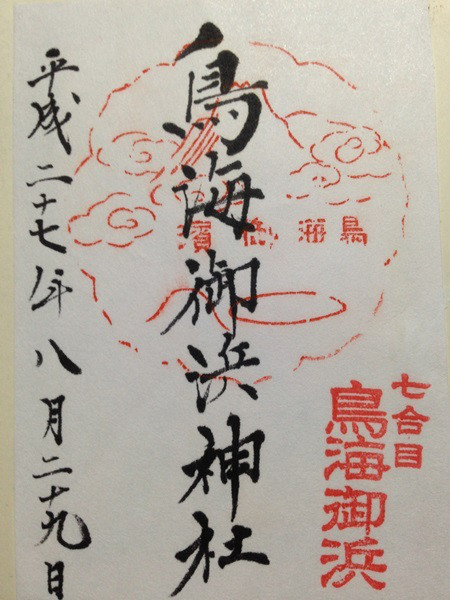 七合目
鳥海御浜
鳥海御濱
鳥海御浜神社
平成二十七年八月二十九日